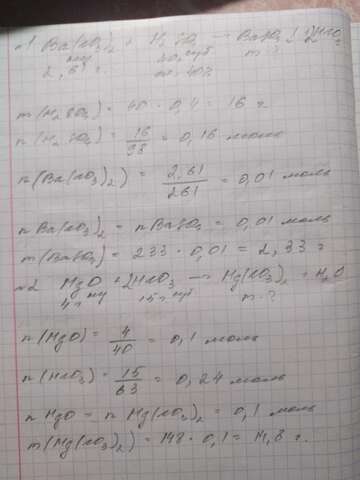 №1 Ba(NO₃)₂ + H₂SO₄ → BaSO₄ + 2HNO₃
2,61 г
ω = 40%
m - ?
m(H₂SO₄) = 40 · 0,4 = 16 г
n(H₂SO₄) = 16/98 = 0,16 моль
n(Ba(NO₃)₂) = 2,61/261 = 0,01 моль
n Ba(NO₃)₂ = n BaSO₄ = 0,01 моль
m(BaSO₄) = 233 · 0,01 = 2,33 г
№2 MgO + 2HNO₃ → Mg(NO₃)₂ + H₂O
4 г
15 г
m - ?
n(MgO) = 4/40 = 0,1 моль
n(HNO₃) = 15/63 = 0,24 моль
n MgO = n Mg(NO₃)₂ = 0,1 моль
m(Mg(NO₃)₂) = 148 · 0,1 = 14,8 г.